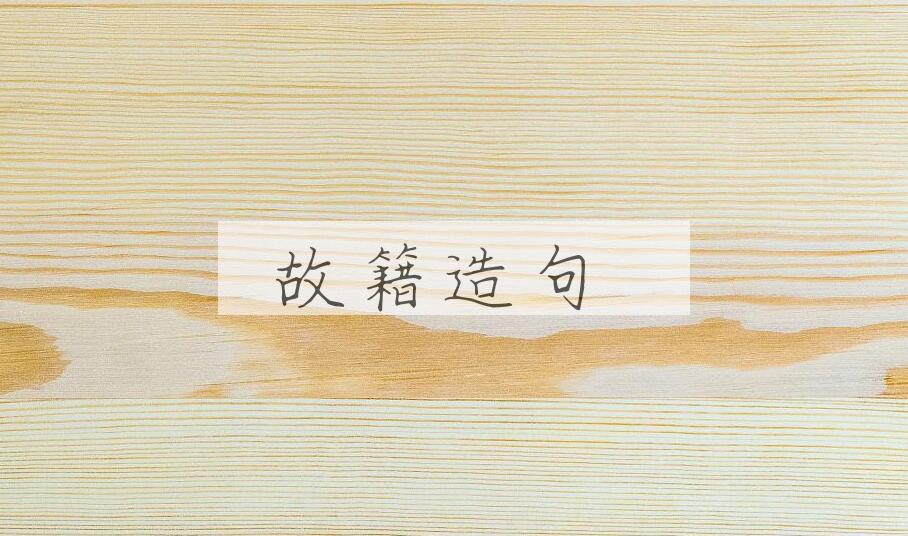 故籍造句